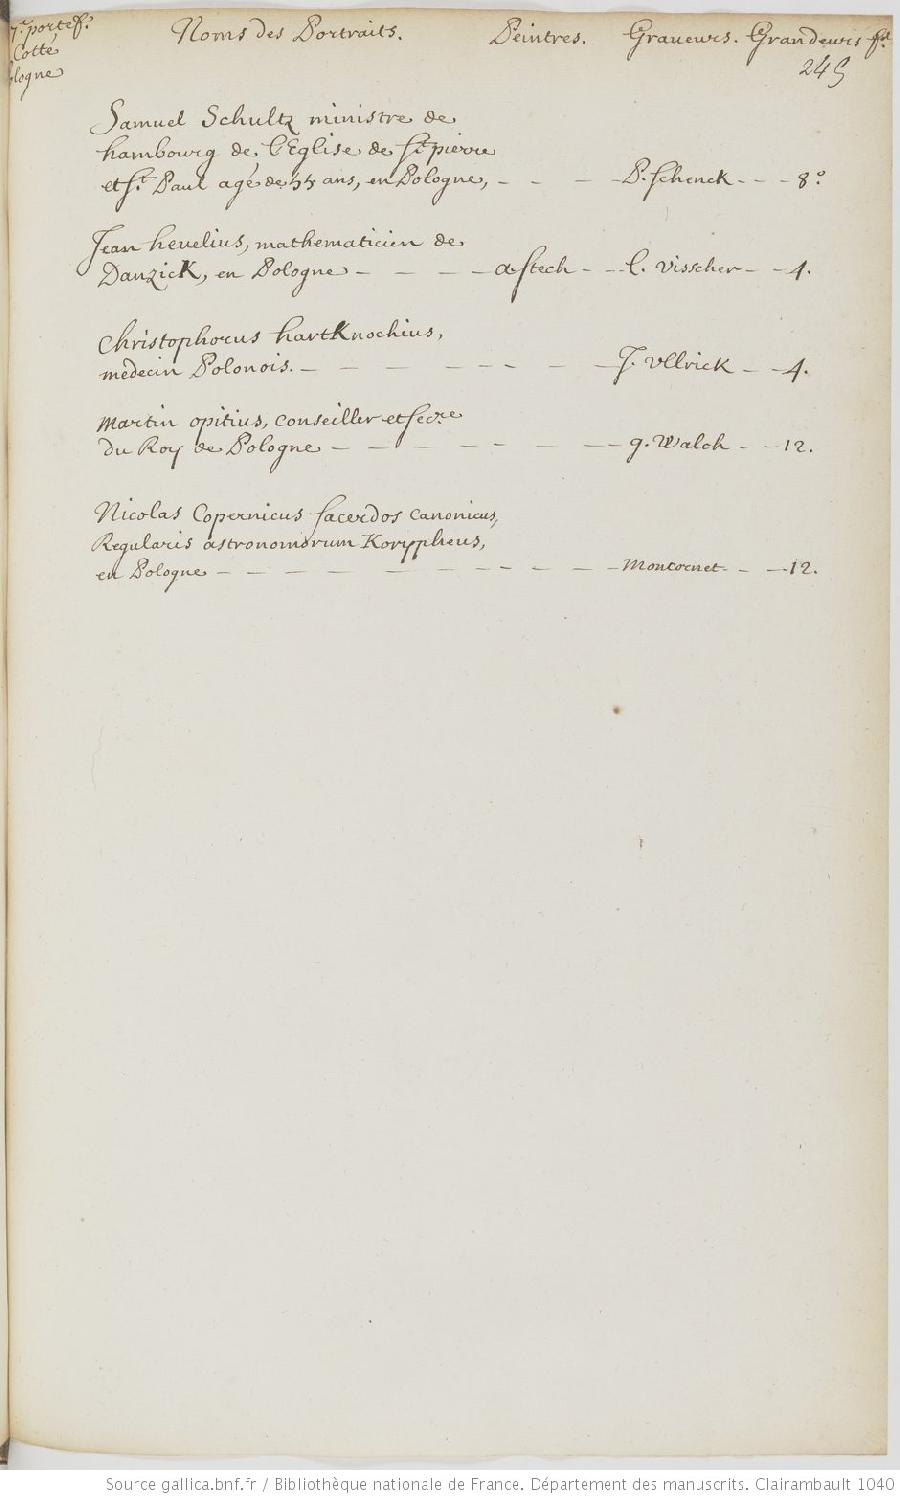 7.e portef.
Cotte
ologne
Noms des Portraits. Peintres. Graueurs. Grandeurs f.t
245
Samuel Schultz ministre de
hambourg de, l'Eglise de St pierre
et St. Paul agé de 55 ans, en Pologne, - - - - P. Schenck - - - 8.o
Jean heuelius, mathematicien de
Danzick, en Pologne - - - - a Stech - - l. Visscher - - 4.
Christophorus hartknochius,
medecin Polonois. - - - - - - - - J. Ullrick - - 4.
Martin opitius, conseiller et Secre
du Roy de Pologne - - - - - - - - g. Walch - - 12.
Nicolas Copernicus Sacerdos canonicus,
Regularis astronomorum Koryppheus,
en Pologne - - - - - - - - - - - - Moncornet - - 12.
Source gallica.bnf.fr / Bibliothèque nationale de France. Département des manuscrits. Clairambault 1040